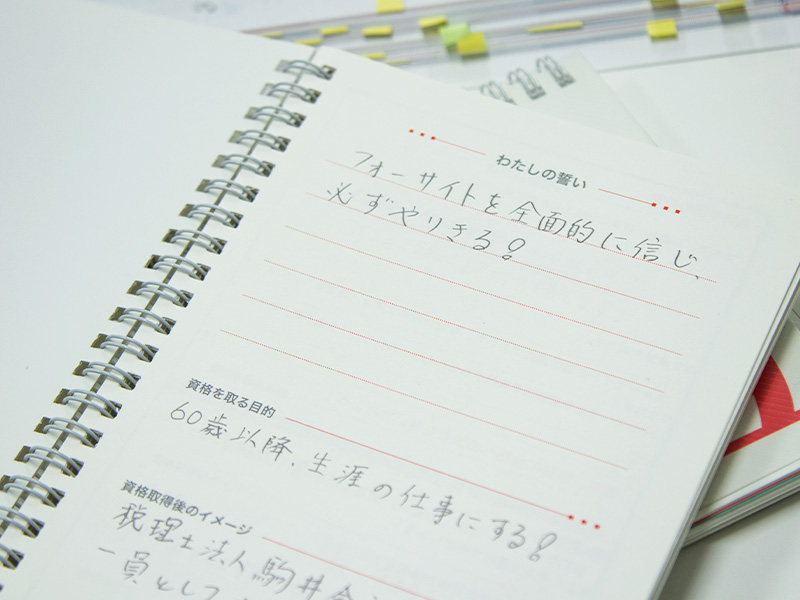 わたしの誓い
フォーサイトを全面的に信じ、
必ずやりきる!
資格を取る目的
60歳以降、生涯の仕事にする!
資格取得後のイメージ
税理士法人駒井会
一員として